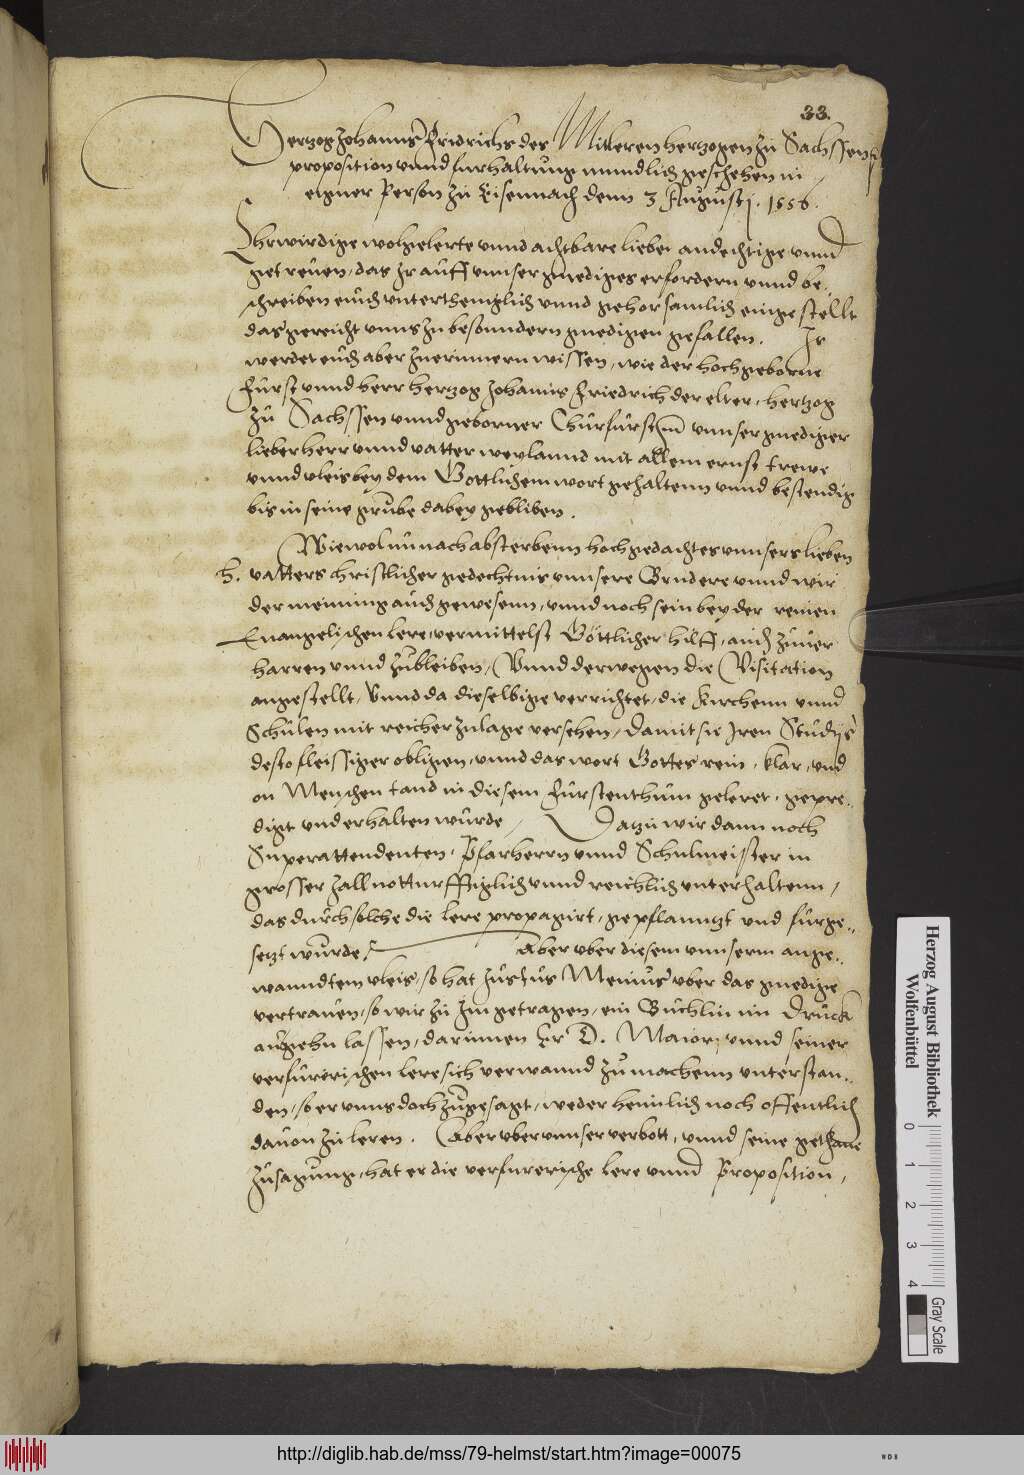 33.
Hertzog Johanns Fridrichs des Mitleren hertzogen zu Sachssen
proposition vnnd furhaltung mundlich geschehen in
eigner Person zu Eisennach denn 3 Augusti. 1556.
Ehrwirdige wolgelerte vnnd achtbare liebe andechtige vnnd
getreuen, das Ir auff vnnser gnediges erfordern vnnd be-
schreiben euch vnterthenglich vnnd gehorsamlich eingestellt
das gereicht vnns zu besonndern gnedigen gefallen. Ir
werdet euch aber zuerinnern wissen, wie der hochgeborne
Fürst vnnd herr hertzog Johanns Friedrich der elter, hertzog
zu Sachssen vnnd geborner Churfürst vnnser gnediger
lieber herr vnnd vatter weylannd mit allem ernst trewe
vnnd vleis bey dem Gottlichem wort gehaltenn vnnd bestendig
bis in seine grube dabey gebliben.
Wiewol nu nach absterbenn hochgedachtes vnnsers lieben
h. vatters christlicher gedechtnis vnnsere Brudere vnnd wir
der meinung auch gewesenn, vnnd noch sein bey der reinen
Euangelischen lere, vermittelst Göttlicher hilff, auch zuuer
harren vnnd zubleiben, Vnnd derwegen die Visitation
angestellt, Vnnd da dieselbige verrichtet, die Kirchenn vnnd
Schulen mit reicher zulage versehen, damit sie Iren Studijs
desto fleissiger obligen, vnnd das wort Gottes rein, klar, vnd
on Menschen tand in diesem Fürstenthum geleret, gepre-
digt vnd erhalten wurde, Datzu wir dann noch
Superattendenten, Pfarherrn vnnd Schulmeister in
grosser zall notturfftiglich vnnd reichlich vnterhaltenn,
das durch solche die lere propagirt, gepflanntzt vnd fürge-
setzt wurde. Aber vber diesem vnnserm ange-
wanndtem vleis, so hat Justus Menius vber das gnedige
vertrauen, so wir zu Im getragen, ein Buchlin im Druck
ausgehn lassen, darinnen Er D. Maiori vnnd seiner
verfurerischen lere sich verwannd zu machenn vnterstan-
den, so er vnns doch zugesagt, weder heimlich noch offentlich
dauon zu leren. Aber vber vnnser verbott, vnnd seine gethane
zusagung, hat er die verfurerische lere vnnd Proposition,
Herzog August Bibliothek
Wolfenbüttel
0 1 2 3 4
Gray Scale
http://diglib.hab.de/mss/79-helmst/start.htm?image=00075